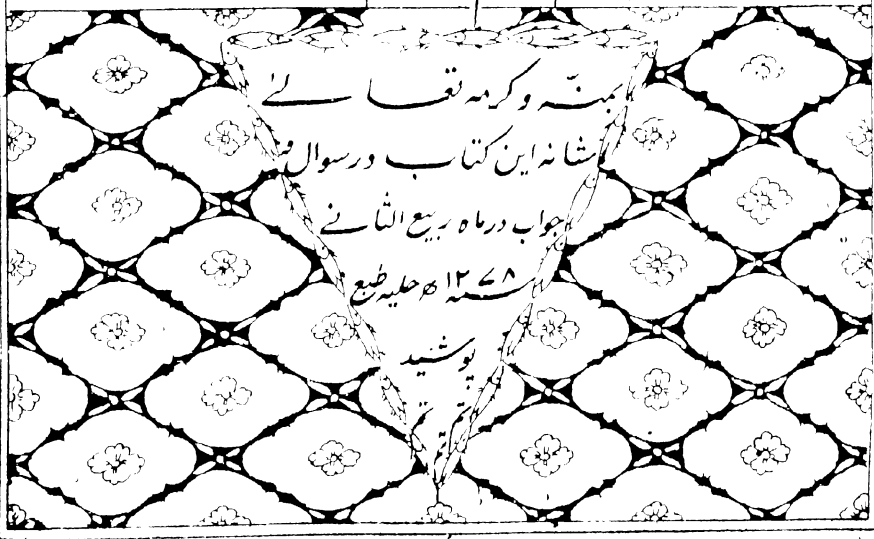 بمنّه و کرمه تعالے
شانه این کتاب در سوال و
جواب در ماه ربیع الثانے
سنه ۱۲۷۸ ھ حلیه طبع
پوشید